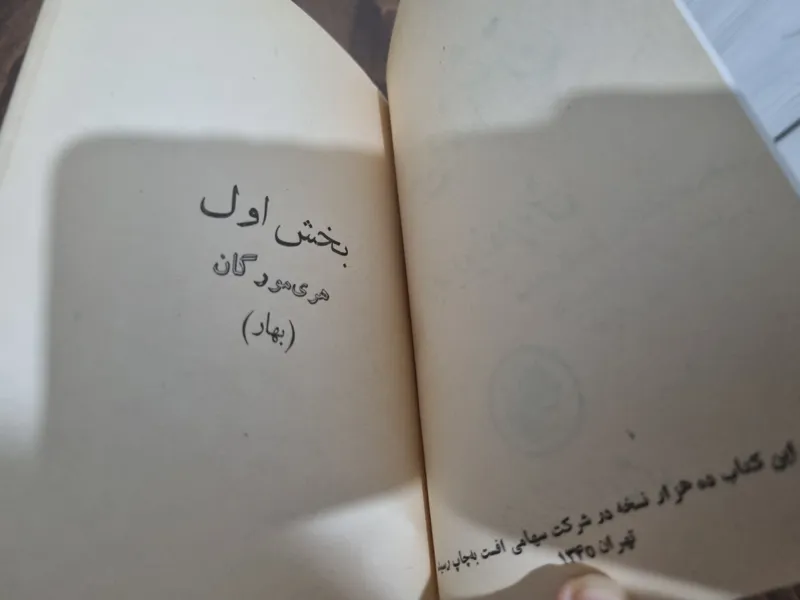 این کتاب ده هزار نسخه در شرکت سهامی افست به‌چاپ رسید
تهران ۱۳۴۵
بخش اول
هری‌مورگان
(بهار)